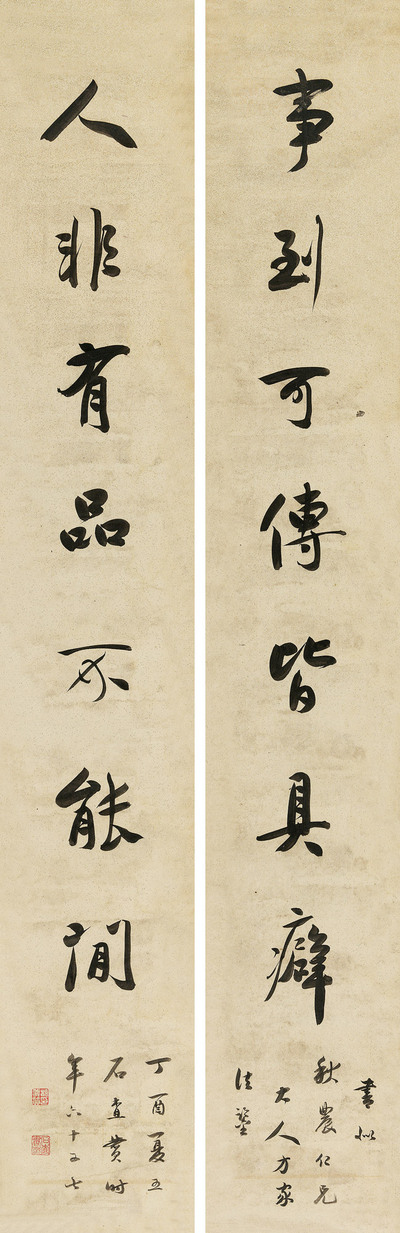 事到可傳皆具癖
書似
秋農仁兄
大人方家
法鑒
人非有品不能閒
丁酉夏五
石查贊時
年六十又七